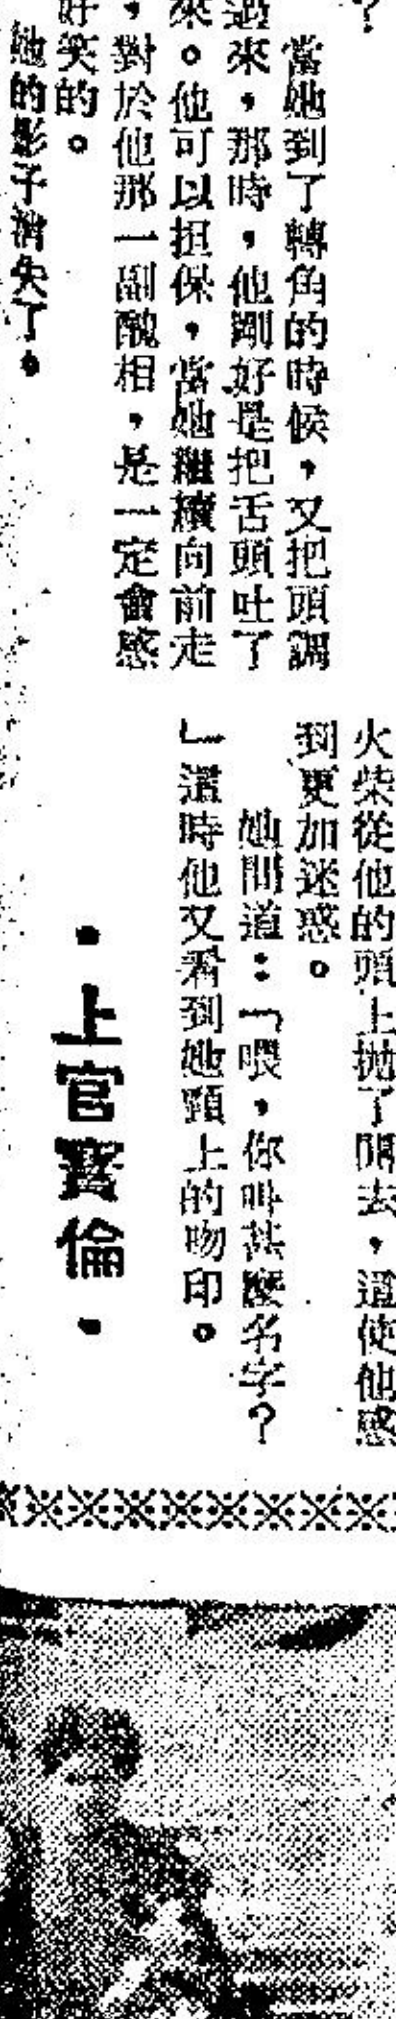 ？
當她到了轉角的時候，又把頭調
過來，那時，他剛好是把舌頭吐了
來。他可以担保，當她繼續向前走
，對於他那一副醜相，是一定會感
好笑的。
她的影子消失了。
火柴從他的頭上拋了開去，這使他感
到更加迷惑。
她問道：「喂，你叫甚麼名字？
」這時他又看到她頸上的吻印。
·上官寶倫·